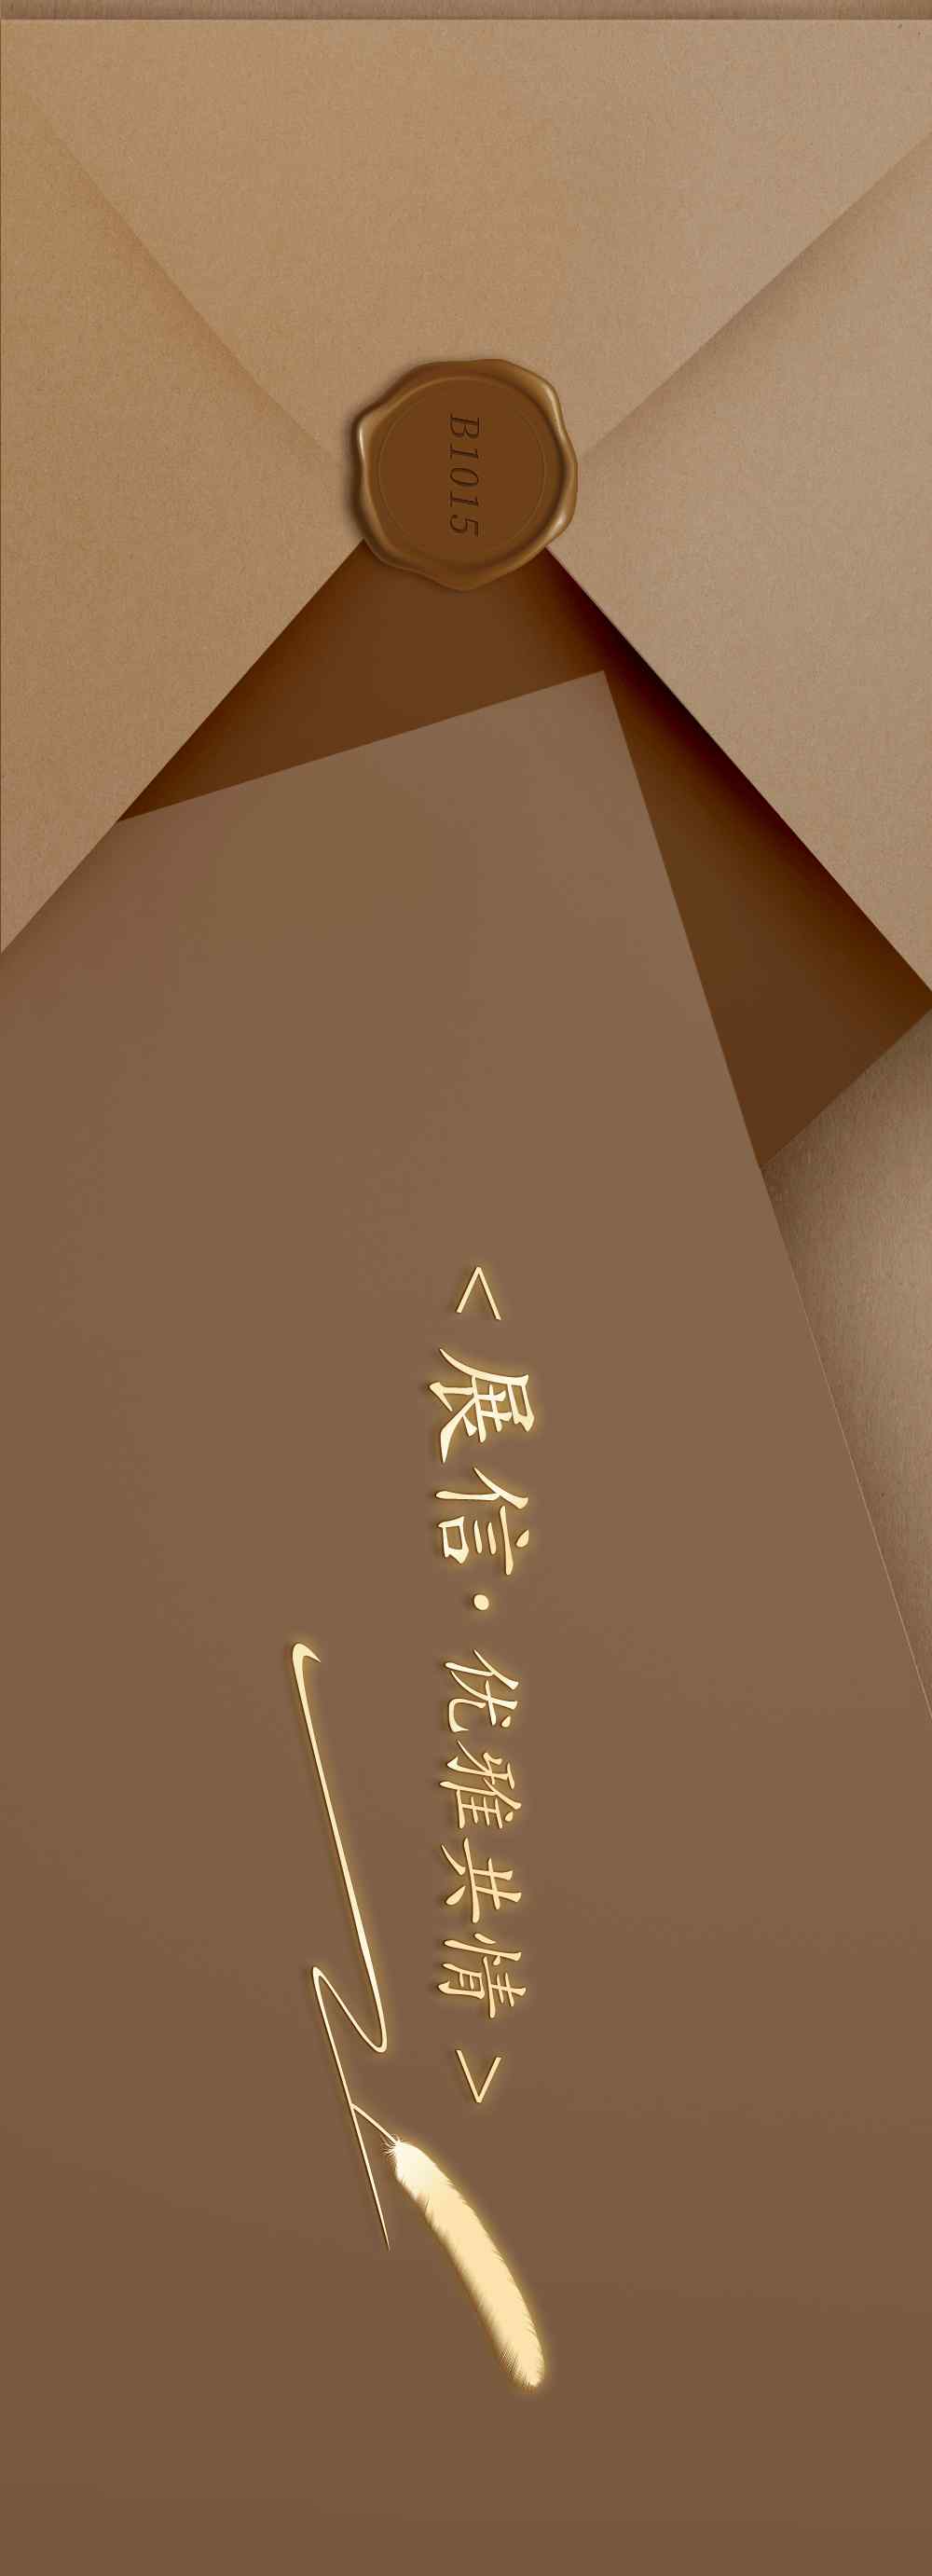 B1015
<展信·优雅共情>